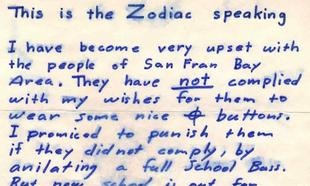 This is the Zodiac speaking
I have become very upset with
the people of San Fran Bay
Area. They have not complied
with my wishes for them to
wear some nice ⌖ buttons.
I promiced to punish them
if they did not comply, by
anilating a full School Buss.
But now school is out for